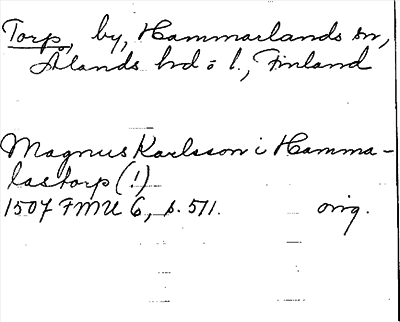 Torp, by, Hammarlands sn,
Ålands hd o l., Finland
Magnus Karlsson i Hamma-
lastorp (!)
1507 FMU 6, s. 571. orig.